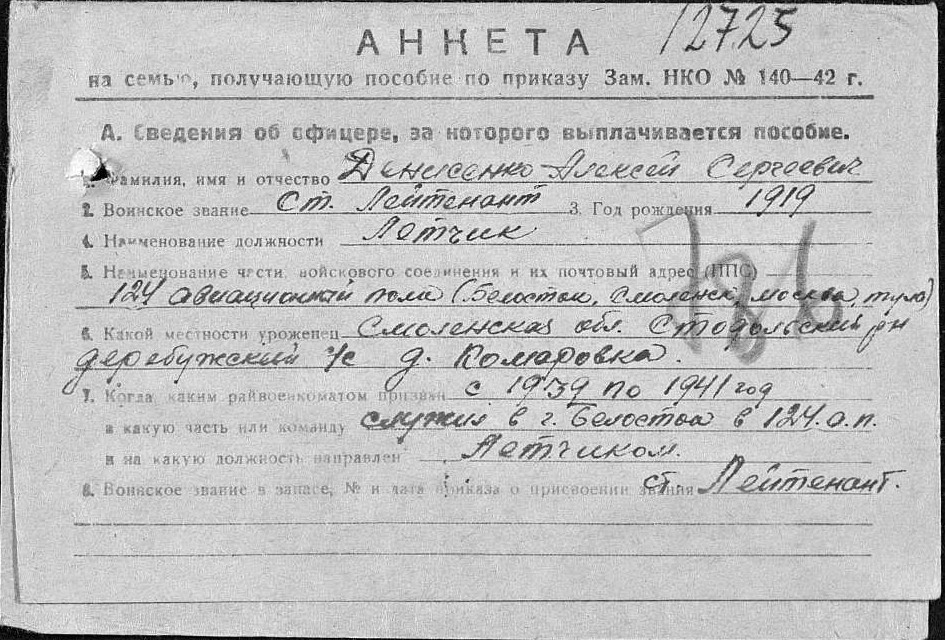 12725
АНКЕТА
на семью, получающую пособие по приказу Зам. НКО № 140—42 г.
А. Сведения об офицере, за которого выплачивается пособие.
Фамилия, имя и отчество Денисенко Алексей Сергеевич
2. Воинское звание Ст. Лейтенант 3. Год рождения 1919
4. Наименование должности Летчик
5. Наименование части, войскового соединения и их почтовый адрес (ППС)
124 авиационный полк (Белосток, Смоленск, Москва, Тула)
6. Какой местности уроженец Смоленская обл. Стодолский рн
деребужский с/с д. Комаровка.
7. Когда, каким райвоенкоматом призван с 1939 по 1941 год
в какую часть или команду служил в г. Белосток в 124.а.п.
и на какую должность направлен Летчиком.
8. Воинское звание в запасе, № и дата приказа о присвоении звания ст. Лейтенант.